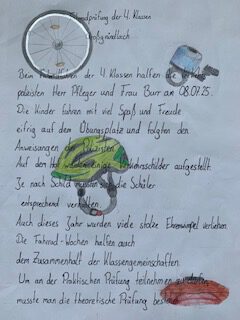 Fahrradprüfung der 4. Klassen
Großgründlach
Beim Fahrradfahren der 4. Klassen halfen die Verkehrs-
polizisten Herr Pfleger und Frau Burr am 08.07.25.
Die Kinder fuhren mit viel Spaß und Freude
eifrig auf dem Übungsplatz und folgten den
Anweisungen der Polizisten.
Auf dem Hof wurden einige Verkehrsschilder aufgestellt.
Je nach Schild mussten sich die Schüler
entsprechend verhalten.
Auch dieses Jahr wurden viele stolze Ehrenwimpel verliehen.
Die Fahrrad-Wochen halfen auch
dem Zusammenhalt der Klassengemeinschaften.
Um an der Praktischen Prüfung teilnehmen zu dürfen,
musste man die theoretische Prüfung bestehen.